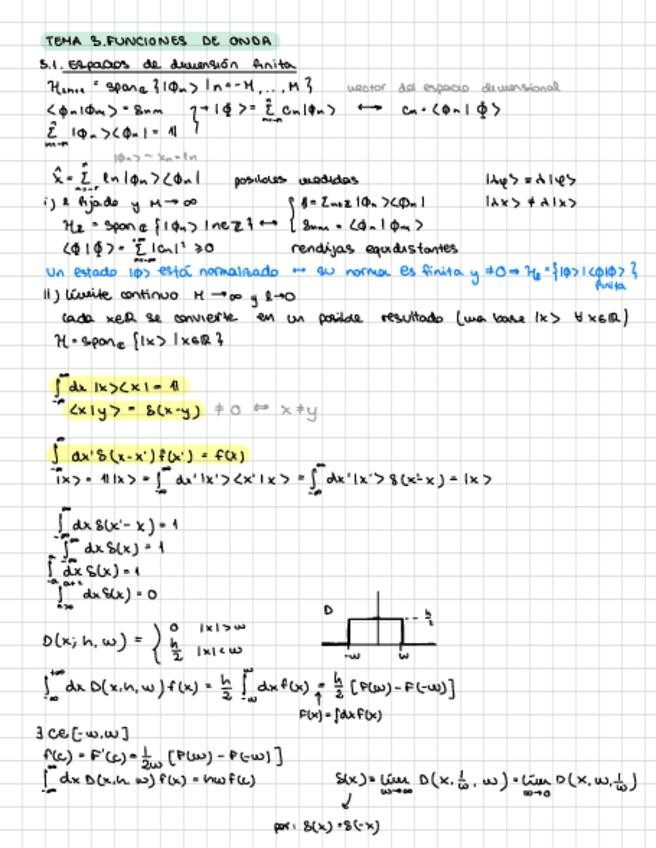 TEMA 5. FUNCIONES DE ONDA
5.1. Espacios de dimensión finita
= span_C {|ϕn> | n=-M, ..., M} vector del espacio dimensional
<ϕn|ϕm> = δnm } → |Φ> = Σ cn|ϕn> ↔ cn = <ϕn|Φ>
Σ |ϕn><ϕn| = 1
|ϕn> ~ xn = ln
x̂ = Σ ln|ϕn><ϕn| posibles medidas |λφ> = λ|φ>
i) l fijado y M → ∞ { 1 = Σn∈Z |ϕn><ϕn| |λx> ≠ λ|x>
Hl = span_C {|ϕn> | n∈Z} ↔ { δnm = <ϕn|ϕm>
<ϕ|ϕ> = Σ |cn|² ≥ 0 rendijas equidistantes
Un estado |ϕ> está normalizado ↔ su norma es finita y ≠0 ⇒ Hl = {|ϕ> | <ϕ|ϕ>}
finita
ii) Límite continuo M → ∞ y l→0
cada x∈R se convierte en un posible resultado (una base |x> ∀x∈R)
H = span_C {|x> | x∈R}
∫ dx |x><x| = 1
<x|y> = δ(x-y) ≠ 0 ⇔ x≠y
∫ dx' δ(x-x') f(x') = f(x)
|x> = 1|x> = ∫ dx'|x'><x'|x> = ∫ dx'|x'> δ(x'-x) = |x>
∫ dx δ(x'-x) = 1
∫ dx δ(x) = 1
∫ dx δ(x) = 1
∫ dx δ(x) = 0
D
h/2
D(x; h, w) = { 0 |x|>w
h/2 |x|<w
-w w
∫ dx D(x,h,w) f(x) = h/2 ∫ dx f(x) = h/2 [F(w) - F(-w)]
F(x) = ∫dx f(x)
∃ c∈[-w,w]
f(c) = F'(c) = 1/2w [F(w) - F(-w)]
∫ dx D(x,h,w) f(x) = hw f(c) δ(x) = lím w→∞ D(x, 1/w, w) = lím w→0 D(x, w, 1/w)
par: δ(x) = δ(-x)